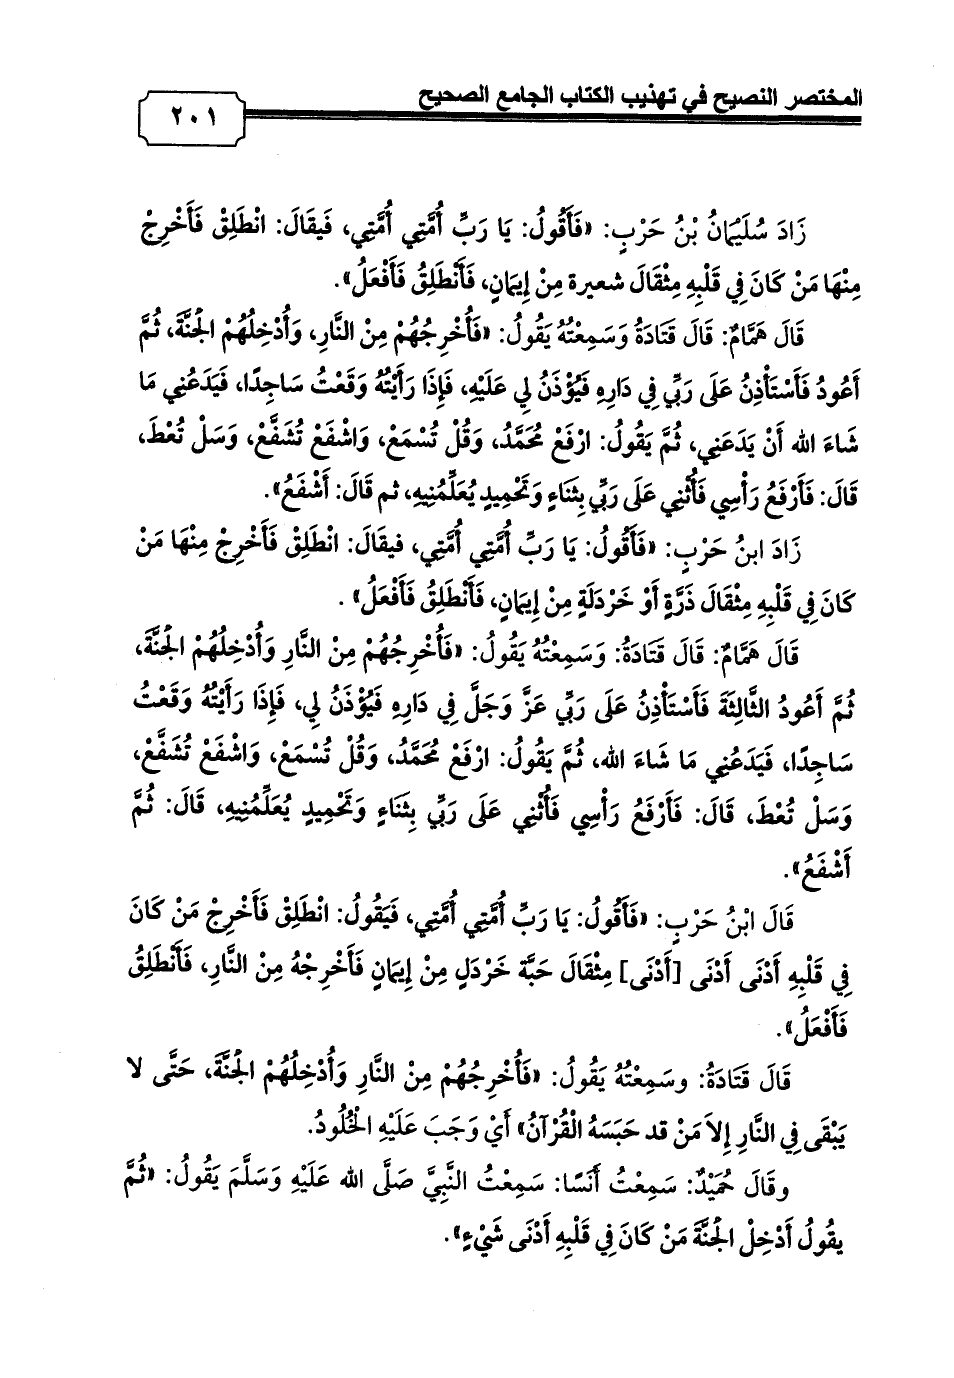 المختصر النصيح في تهذيب الكتاب الجامع الصحيح
٢٠١
زَادَ سُلَيْمَانُ بْنُ حَرْبٍ: «فَأَقُولُ: يَا رَبِّ أُمَّتِي أُمَّتِي، فَيقَالَ: انْطَلِقْ فَأَخْرِجْ
مِنْهَا مَنْ كَانَ فِي قَلْبِهِ مِثْقَالَ شعيرة مِنْ إِيمَانٍ، فَأَنْطَلِقُ فَأَفْعَلُ».
قَالَ هَمَّامٌ: قَالَ قَتَادَةُ وَسَمِعْتُهُ يَقُولُ: «فَأُخْرِجُهُمْ مِنْ النَّارِ، وَأُدْخِلُهُمْ الْجَنَّةَ، ثُمَّ
أَعُودُ فَأَسْتَأْذِنُ عَلَى رَبِّي فِي دَارِهِ فَيُؤْذَنُ لِي عَلَيْهِ، فَإِذَا رَأَيْتُهُ وَقَعْتُ سَاجِدًا، فَيَدَعُنِي مَا
شَاءَ الله أَنْ يَدَعَنِي، ثُمَّ يَقُولُ: ارْفَعْ مُحَمَّدُ، وَقُلْ تُسْمَعْ، وَاشْفَعْ تُشَفَّعْ، وَسَلْ تُعْطَ،
قَالَ: فَأَرْفَعُ رَأْسِي فَأُثْنِي عَلَى رَبِّي بِثَنَاءٍ وَتَحْمِيدٍ يُعَلِّمُنِيهِ، ثم قَالَ: أَشْفَعُ».
زَادَ ابنُ حَرْبٍ: «فَأَقُولُ: يَا رَبِّ أُمَّتِي أُمَّتِي، فيقَالَ: انْطَلِقْ فَأَخْرِجْ مِنْهَا مَنْ
كَانَ فِي قَلْبِهِ مِثْقَالَ ذَرَّةٍ أَوْ خَرْدَلَةٍ مِنْ إِيمَانٍ، فَأَنْطَلِقُ فَأَفْعَلُ» .
قَالَ هَمَّامٌ: قَالَ قَتَادَةُ: وَسَمِعْتُهُ يَقُولُ: «فَأُخْرِجُهُمْ مِنْ النَّارِ وَأُدْخِلُهُمْ الْجَنَّةَ،
ثُمَّ أَعُودُ الثَّالِثَةَ فَأَسْتَأْذِنُ عَلَى رَبِّي عَزَّ وَجَلَّ فِي دَارِهِ فَيُؤْذَنُ لِي، فَإِذَا رَأَيْتُهُ وَقَعْتُ
سَاجِدًا، فَيَدَعُنِي مَا شَاءَ الله، ثُمَّ يَقُولُ: ارْفَعْ مُحَمَّدُ، وَقُلْ تُسْمَعْ، وَاشْفَعْ تُشَفَّعْ،
وَسَلْ تُعْطَ، قَالَ: فَأَرْفَعُ رَأْسِي فَأُثْنِي عَلَى رَبِّي بِثَنَاءٍ وَتَحْمِيدٍ يُعَلِّمُنِيهِ، قَالَ: ثُمَّ
أَشْفَعُ».
قَالَ ابْنُ حَرْبٍ: «فَأَقُولُ: يَا رَبِّ أُمَّتِي أُمَّتِي، فَيَقُولُ: انْطَلِقْ فَأَخْرِجْ مَنْ كَانَ
فِي قَلْبِهِ أَدْنَى أَدْنَى [أَدْنَى] مِثْقَالَ حَبَّة خَرْدَلٍ مِنْ إِيمَانٍ فَأَخْرِجْهُ مِنْ النَّارِ، فَأَنْطَلِقُ
فَأَفْعَلُ».
قَالَ قَتَادَةُ: وسَمِعْتُهُ يَقُولُ: «فَأُخْرِجُهُمْ مِنْ النَّارِ وَأُدْخِلُهُمْ الْجَنَّةَ، حَتَّى لا
يَبْقَى فِي النَّارِ إِلاَ مَنْ قد حَبَسَهُ الْقُرْآنُ» أَيْ وَجَبَ عَلَيْهِ الْخُلُودُ.
وقَالَ حُمَيْدٌ: سَمِعْتُ أَنَسًا: سَمِعْتُ النَّبِيَّ صَلَّى الله عَلَيْهِ وَسَلَّمَ يَقُولُ: «ثُمَّ
يقُولُ أَدْخِلْ الْجَنَّةَ مَنْ كَانَ فِي قَلْبِهِ أَدْنَى شَيْءٍ».